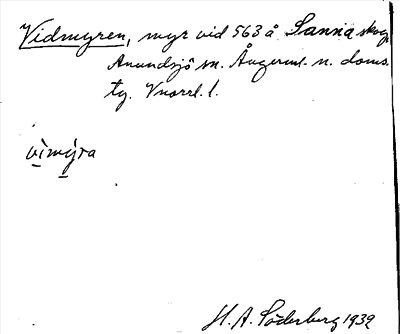 Vidmyren, myr vid 563 å Sannia skog,
Anundsjö sn. Ångerml. n. doms.
tg. Vnorrl. l.
vimyra
H. A. Söderberg 1939